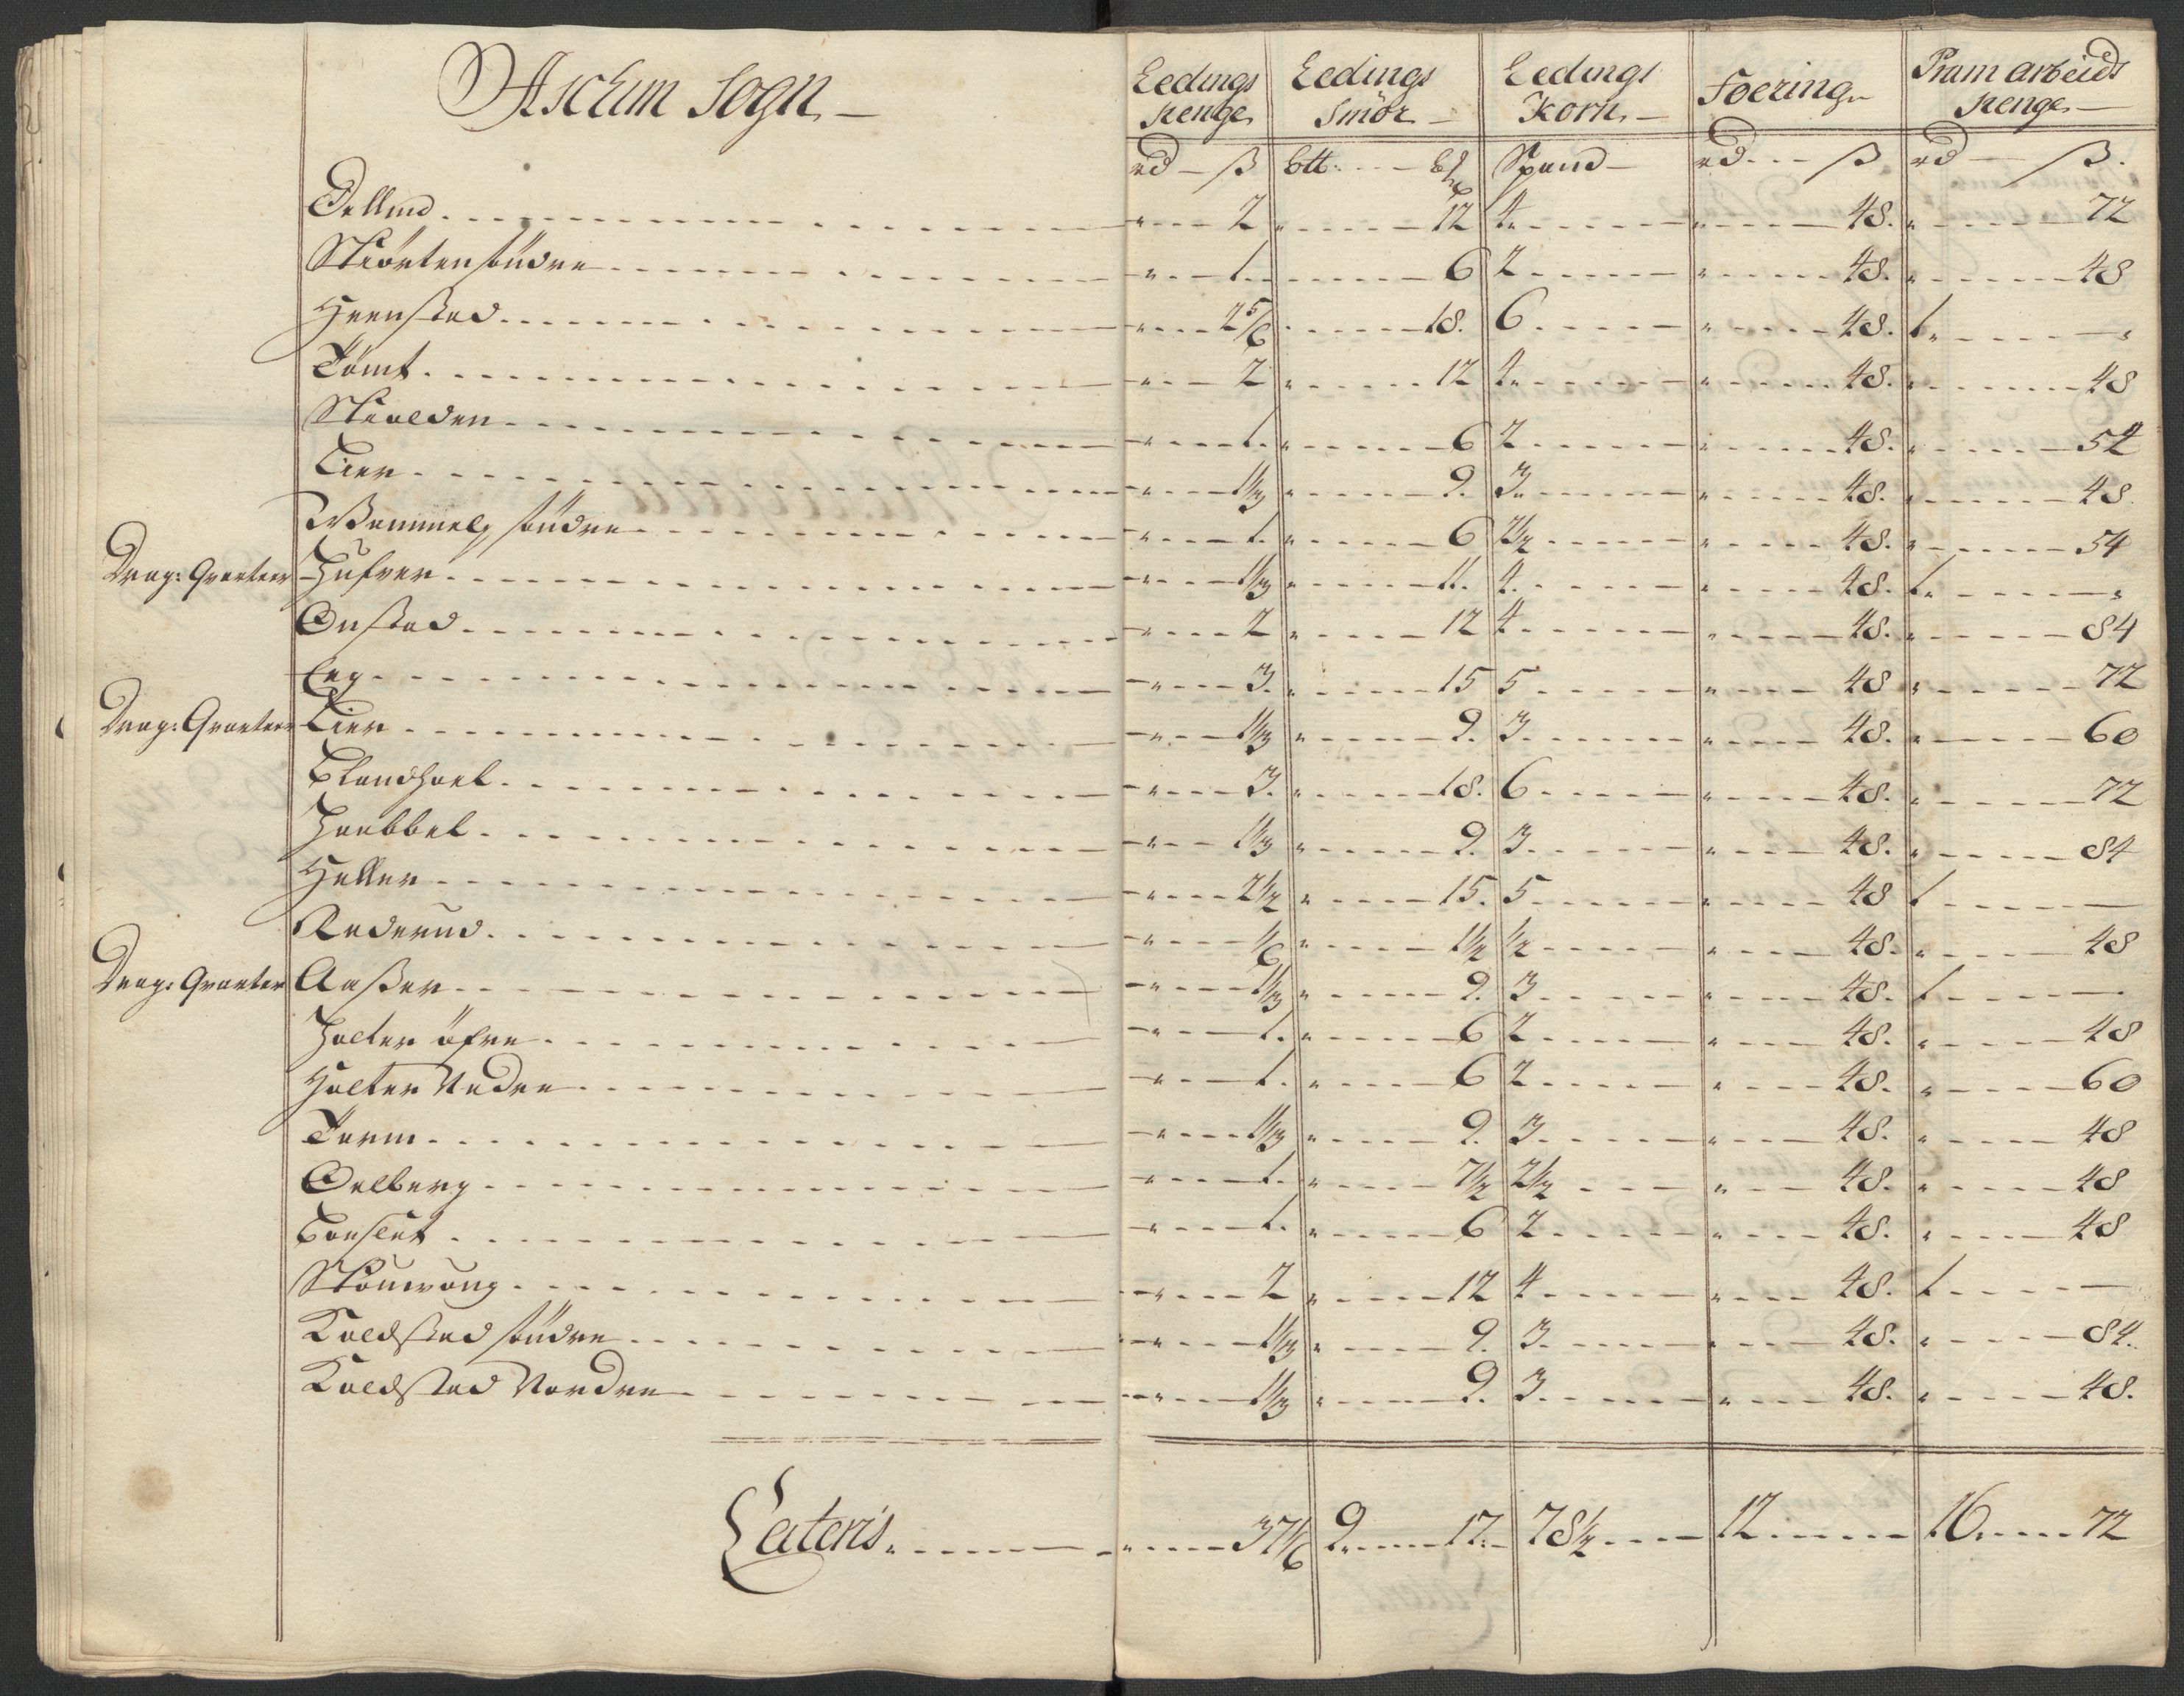 Aschim Sogn
Leedings penge | Leedings Smör | Leedings Korn | Foering | Pram arbeids penge
rd – ß | btt: – | Spand | rd – ß | rd – ß.
2 | 12 | 4 | 48. | 72
Skiörten Söndre | 1. | 6 | 2 | 48. | 48
Heenstad | 2 5/6 | 18. | 6 | 48. | 1.
Tömt | 2 | 12 | 4 | 48. | 48
Skiolden | 1. | 6 | 2 | 48. | 54
Lier | 1 1/3 | 9. | 3. | 48. | 48
Wammels Söndre | 1. | 6 | 2 1/2 | 48. | 54
Drag: Qvarteer Hufver | 1 1/3 | 11. | 4. | 48. | 1.
Onstad | 2 | 12 | 4 | 48. | 84
Eeg | 3. | 15 | 5 | 48 | 72
Drag: Qvarteer Lier | 1 1/3 | 9. | 3. | 48. | 60
3. | 18. | 6 | 48. | 72
Haabbel | 1 1/3 | 9. | 3. | 48. | 84
Heller | 2 1/2 | 15. | 5 | 48 | 1
Rederud | 1/6 | 1 1/2 | 1/2 | 48. | 48
Drag: Qvarteer Aaßer | 1 1/3 | 9. | 3 | 48. | 1
Holter öfre | 1. | 6 | 2 | 48. | 48
Holter Nedre | 1. | 6 | 2 | 48. | 60
Torm | 1 1/3 | 9. | 3 | 48. | 48
Oelberg | 1. | 7 1/2 | 2 1/2 | 48. | 48
1. | 6 | 2 | 48. | 48
Skouwong | 2 | 12 | 4 | 48. | 1
Koldstad Söndre | 1 1/3 | 9. | 3. | 48. | 84.
Koldstad Nordre | 1 1/3 | 9. | 3. | 48. | 48.
Lateris | 37 1/6 | 9. 12. | 78 1/2 | 12 | 16. 72